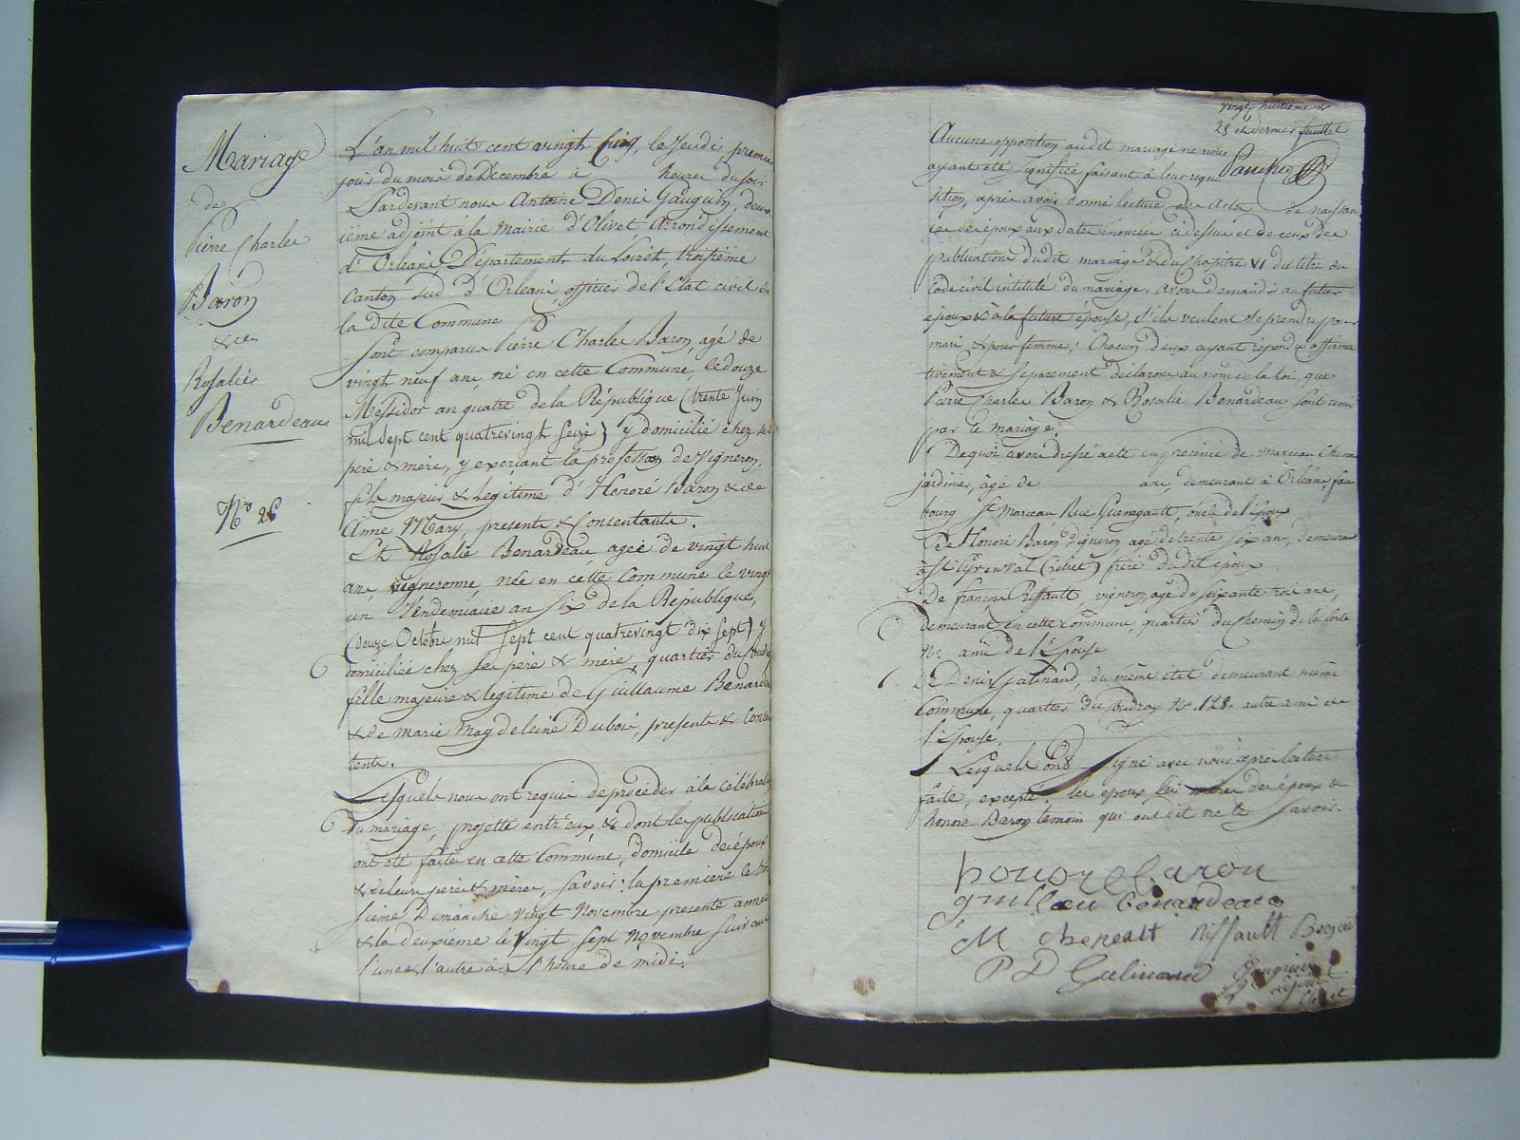 Mariage
de
Pierre Charles
Baron
& de
Rosalie
Benardeau
No 26
L'an mil huit cent vingt cinq, le Jeudi premier
jour du mois de Decembre à heures du soir
Pardevant nous Antoine Denis Gauguin, deux
ième adjoint à la Mairie d'Olivet Arrondissement
d'Orléans, Département du Loiret, troisième
Canton sud d'Orléans, officier de l'Etat civil de
la dite Commune
Sont comparus Pierre Charles Baron, agé de
vingt neuf ans, né en cette Commune, le douze
Messidor an quatre de la République (trente Juin
mil sept cent quatrevingt seize) y domicilié chez ses
père & mère, y exerçant la profession de Vigneron,
fils majeur & légitime d'Honoré Baron & de
Anne Mary, presents & Consentants.
Et Rosalie Benardeau, agée de vingt huit
ans, vigneronne, née en cette Commune le vingt
un Vendemiaire an Six de la République,
(douze Octobre mil sept cent quatrevingt dix sept) y
domiciliée chez ses père & mère, quartier du
fille majeure & légitime de Guillaume Benardeau
& de Marie Magdeleine Dubois, presents & Consen
tants.
Lesquels nous ont requis de procéder à la célébration
du mariage, projetté entr'eux, & dont les publications
ont été faites en cette Commune, domicile des époux
& de leurs pères & mères, Savoir: la premiere le
Dimanche vingt Novembre presente année
& la deuxième le vingt sept Novembre suivant
l'une & l'autre à l'heure de midi.
vingt huitieme
28 et dernier feuillet
Aucune opposition audit mariage ne nous
ayant été signifiée faisant à leur requi
sition, après avoir donné lecture des Actes de naissan
ce des époux aux dates énoncées ci dessus et de ceux des
publications du dit mariage & du chapitre VI du titre du
Code civil intitulé du mariage, avons demandé au futur
époux & à la future épouse, s'ils veulent se prendre pour
mari & pour femme; Chacun d'eux ayant répondu affirma
tivement & séparement déclarons au nom de la loi, que
Pierre Charles Baron & Rosalie Benardeau sont unis
par le mariage.
De quoi avons dressé acte en présence de
jardinier, âgé de ans, demeurant à Orléans fau
bourg St Marceau Rue oncle de l'époux
De Honoré Baron vigneron, agé de trente six ans, demeurant
à St (Loiret) frère du dit époux
De François Riffault vigneron, agé de soixante trois ans,
demeurant en cette commune, quartier du Chemin de la
No ami de l'Epouse
De Denis Galinand, du même état demeurant même
Commune, quartier du No 128. autre ami de
l'Epouse.
Lesquels ont Signé avec nous après lecture
faite, excepté les époux les mères des époux &
honoré Baron témoin qui ont dit ne le savoir.
honore baron
guillau benardeau
M chenealt Riffault
P D Galinand Gauguin